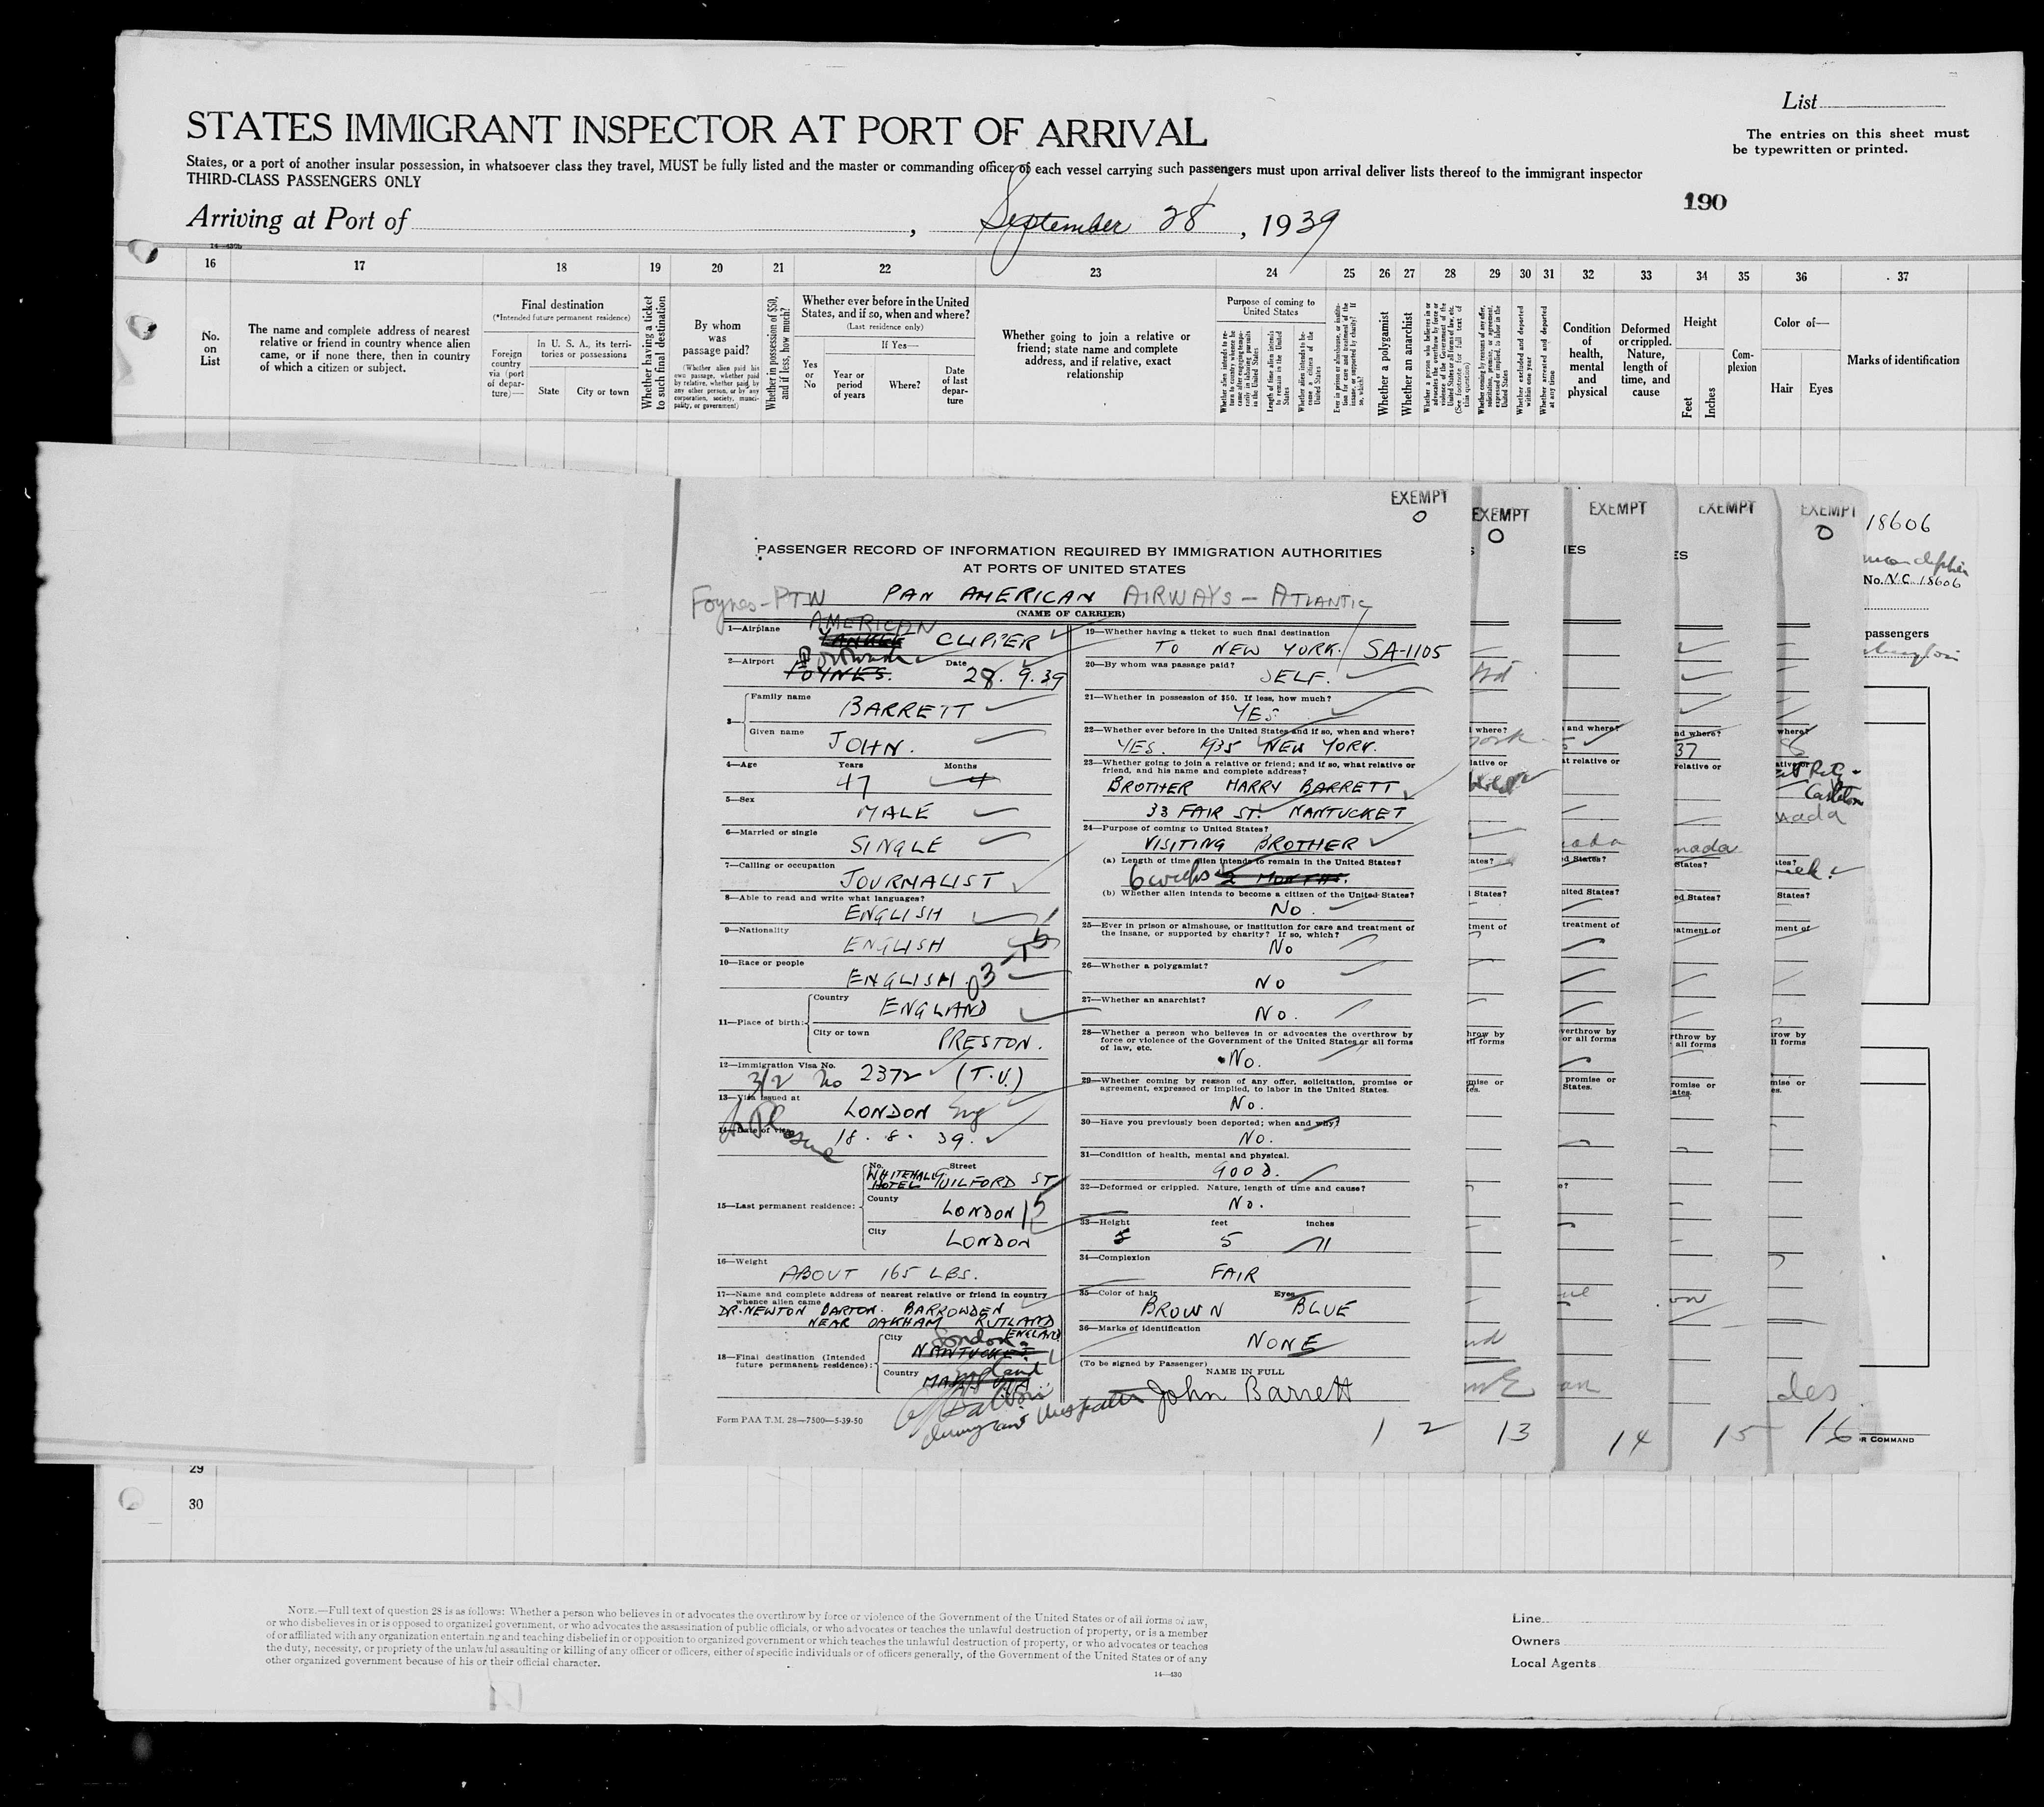 List
The entries on this sheet must
be typewritten or printed.
STATES IMMIGRANT INSPECTOR AT PORT OF ARRIVAL
States, or a port of another insular possession, in whatsoever class they travel, MUST be fully listed and the master or commanding officer of each vessel carrying such passengers must upon arrival deliver lists thereof to the immigrant inspector
THIRD-CLASS PASSENGERS ONLY
190
Arriving at Port of , September 28, 1939
16 17 18 19 20 21 22 23 24 25 26 27 28 29 30 31 32 33 34 35 36 37
No. on List
The name and complete address of nearest relative or friend in country whence alien came, or if none there, then in country of which a citizen or subject.
Final destination
(*Intended future permanent residence)
Foreign country via (port of departure)—
In U. S. A., its territories or possessions
State
City or town
Whether having a ticket to such final destination
By whom was passage paid?
(Whether alien paid his own passage, whether paid by relative, whether paid by any other person, or by any corporation, society, municipality, or government)
Whether in possession of $50, and if less, how much?
Whether ever before in the United States, and if so, when and where?
(Last residence only)
Yes or No
If Yes—
Year or period of years
Where?
Date of last departure
Whether going to join a relative or friend; state name and complete address, and if relative, exact relationship
Purpose of coming to United States
Length of time alien intends to remain in the United States
Whether alien intends to become a citizen of the United States
Whether a polygamist
Whether an anarchist
Whether excluded and deported within one year
Whether arrested and deported at any time
Condition of health, mental and physical
Deformed or crippled. Nature, length of time, and cause
Height
Feet
Inches
Complexion
Color of—
Hair
Eyes
Marks of identification
EXEMPT
0
PASSENGER RECORD OF INFORMATION REQUIRED BY IMMIGRATION AUTHORITIES
AT PORTS OF UNITED STATES
Foynes-PTW PAN AMERICAN AIRWAYS — ATLANTIC
(NAME OF CARRIER)
1—Airplane AMERICAN YANKEE CLIPPER
2—Airport FOYNES. Date 28. 9. 39
3— Family name BARRETT
Given name JOHN.
4—Age Years 47 Months 4
5—Sex MALE
6—Married or single SINGLE
7—Calling or occupation JOURNALIST
8—Able to read and write what languages? ENGLISH
9—Nationality ENGLISH
10—Race or people ENGLISH. 03
11—Place of birth: Country ENGLAND
City or town PRESTON.
12—Immigration Visa No. 3/2 No 2372 (T.V.)
13—Visa issued at LONDON Eng
14—Date of visa 18. 8. 39.
15—Last permanent residence: No. Street WHITEHALL HOTEL GUILFORD ST
County LONDON 15
City LONDON
16—Weight ABOUT 165 LBS.
17—Name and complete address of nearest relative or friend in country whence alien came
DR. NEWTON BARTON. BARROWDEN
NEAR OAKHAM RUTLAND
ENGLAND
18—Final destination (Intended future permanent residence): City London NANTUCKET
Country England
Form PAA T.M. 28—7500—5-39-50
19—Whether having a ticket to such final destination
TO NEW YORK. SA-1105
20—By whom was passage paid?
SELF.
21—Whether in possession of $50. If less, how much?
YES
22—Whether ever before in the United States and if so, when and where?
YES. 1935 NEW YORK.
23—Whether going to join a relative or friend; and if so, what relative or friend, and his name and complete address?
BROTHER HARRY BARRETT
33 FAIR ST. NANTUCKET
24—Purpose of coming to United States?
VISITING BROTHER
(a) Length of time alien intends to remain in the United States?
6 weeks 2 MONTHS.
(b) Whether alien intends to become a citizen of the United States?
NO.
25—Ever in prison or almshouse, or institution for care and treatment of the insane, or supported by charity? If so, which?
NO
26—Whether a polygamist?
NO
27—Whether an anarchist?
NO.
28—Whether a person who believes in or advocates the overthrow by force or violence of the Government of the United States or all forms of law, etc.
NO.
29—Whether coming by reason of any offer, solicitation, promise or agreement, expressed or implied, to labor in the United States.
NO.
30—Have you previously been deported; when and why?
NO.
31—Condition of health, mental and physical.
GOOD.
32—Deformed or crippled. Nature, length of time and cause?
NO.
33—Height feet inches
5 11
34—Complexion
FAIR
35—Color of hair Eyes
BROWN BLUE
36—Marks of identification
NONE
(To be signed by Passenger)
NAME IN FULL
John Barrett
12
EXEMPT
0
13
EXEMPT
14
EXEMPT
15
EXEMPT
0
16
18606
No. N.C. 18606
passengers
COMMAND
29
30
NOTE.—Full text of question 28 is as follows: Whether a person who believes in or advocates the overthrow by force or violence of the Government of the United States or of all forms of law,
or who disbelieves in or is opposed to organized government, or who advocates the assassination of public officials, or who advocates or teaches the unlawful destruction of property, or is a member
of or affiliated with any organization entertaining and teaching disbelief in or opposition to organized government or which teaches the unlawful destruction of property, or who advocates or teaches
the duty, necessity, or propriety of the unlawful assaulting or killing of any officer or officers, either of specific individuals or of officers generally, of the Government of the United States or of any
other organized government because of his or their official character.
14—430
Line
Owners
Local Agents